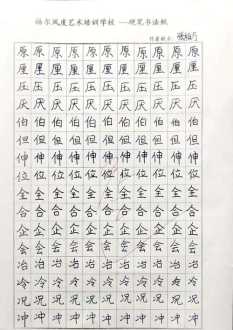 格尔凤度艺术培训学校 ---硬笔书法纸
原 原 原 原 原 原 原 原 原 原
厘 厘 厘 厘 厘 厘 厘 厘 厘 厘
压 压 压 压 压 压 压 压 压 压
厌 厌 厌 厌 厌 厌 厌 厌 厌 厌
伯 伯 伯 伯 伯 伯 伯 伯 伯 伯
但 但 但 但 但 但 但 但 但 但
伸 伸 伸 伸 伸 伸 伸 伸 伸 伸
位 位 位 位 位 位 位 位 位 位
全 全 全 全 全 全 全 全 全 全
合 合 合 合 合 合 合 合 合 合
企 企 企 企 企 企 企 企 企 企
会 会 会 会 会 会 会 会 会 会
冶 冶 冶 冶 冶 冶 冶 冶 冶 冶
冷 冷 冷 冷 冷 冷 冷 冷 冷 冷
况 况 况 况 况 况 况 况 况 况
冲 冲 冲 冲 冲 冲 冲 冲 冲 冲